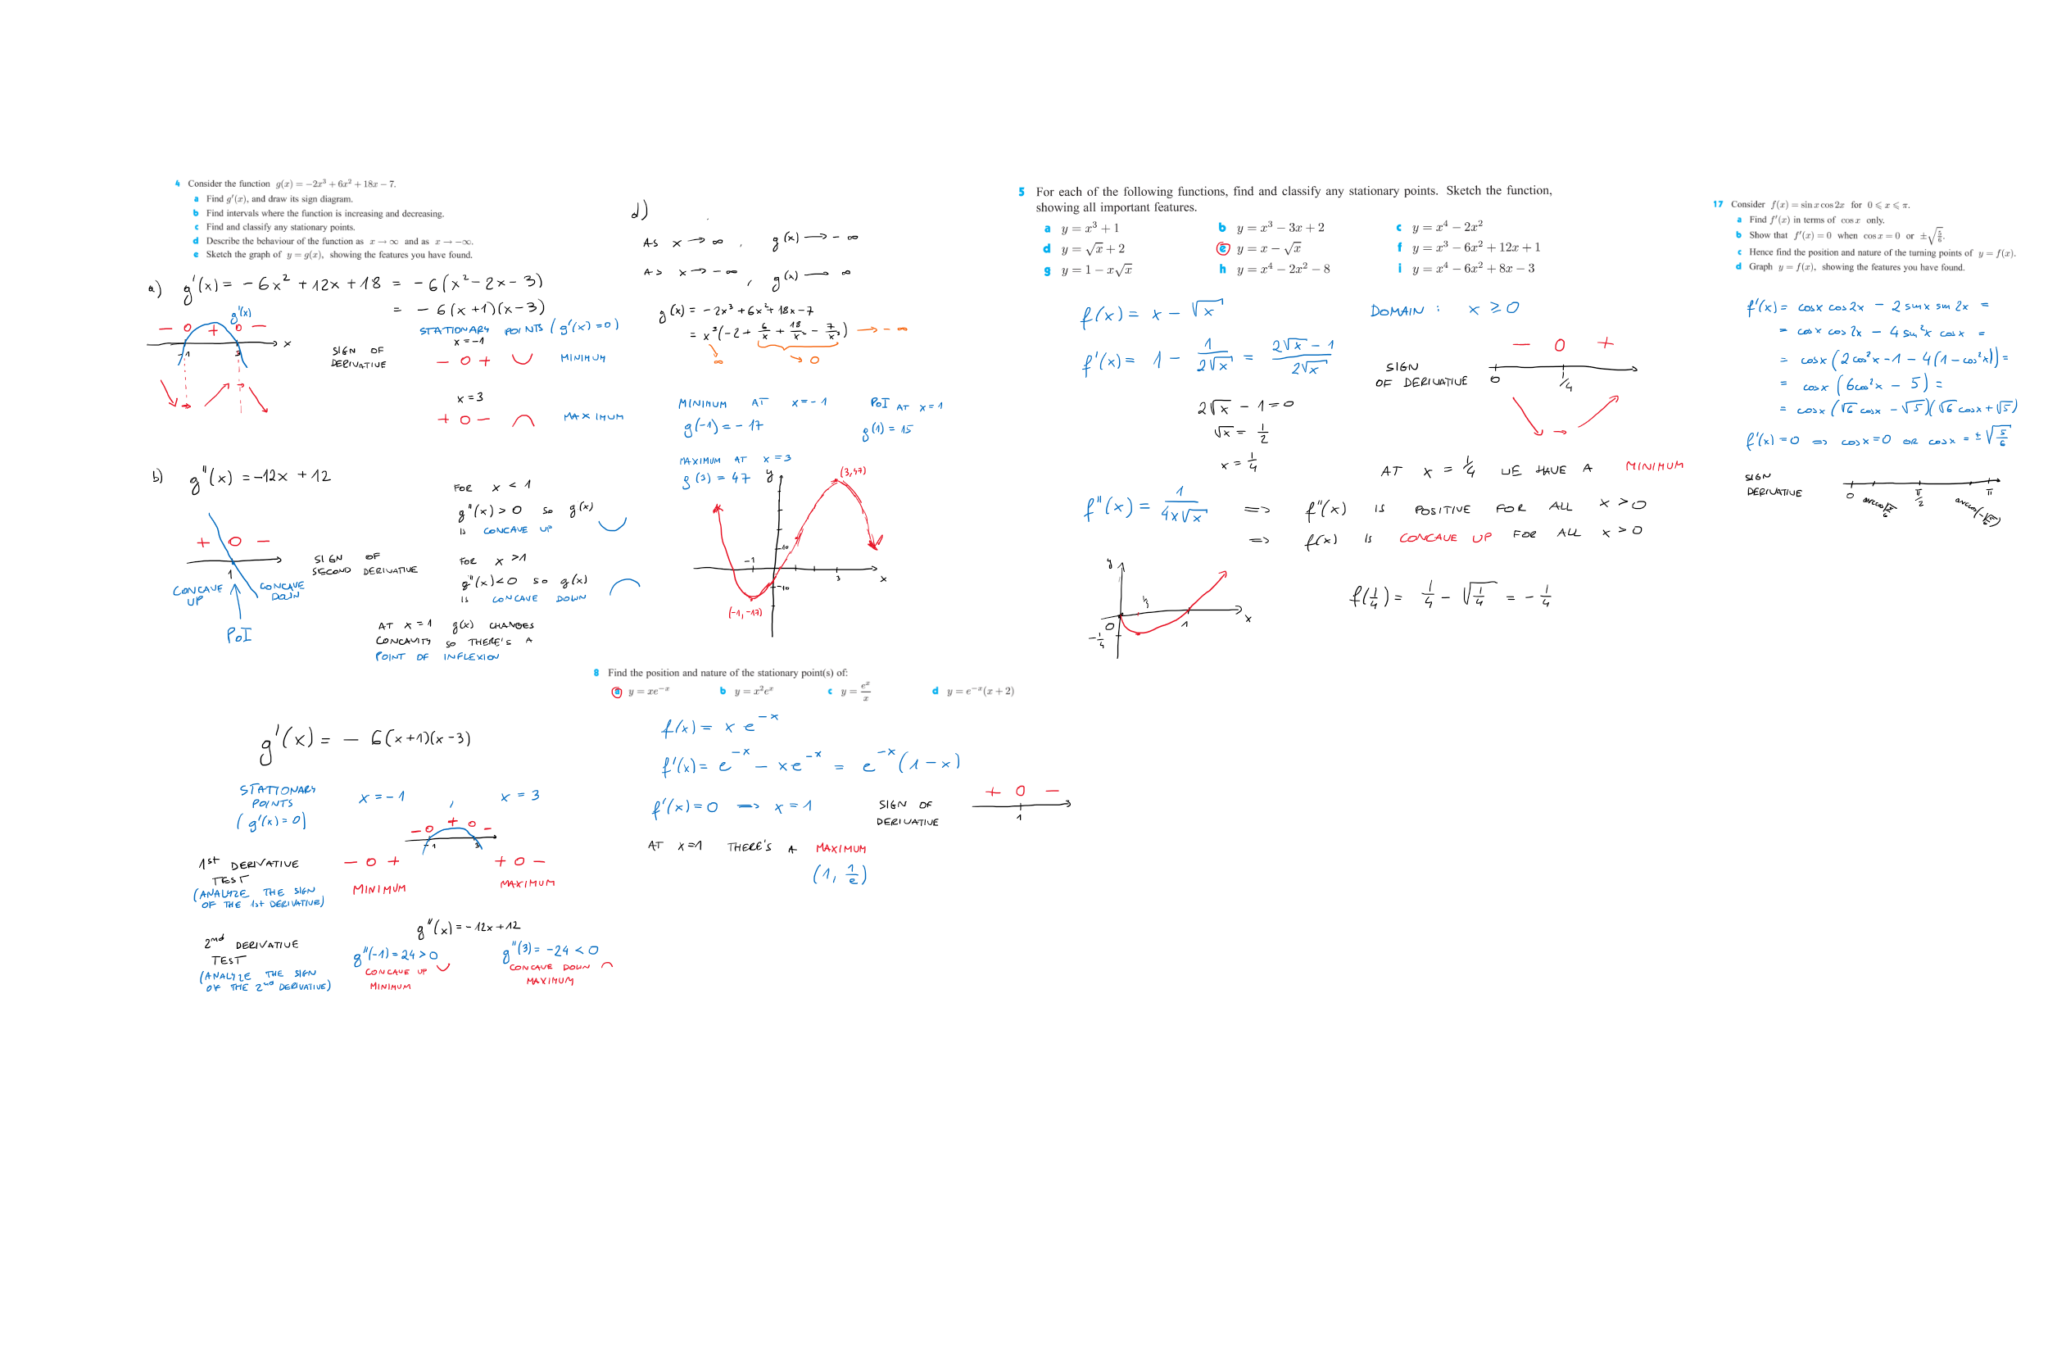 4 Consider the function g(x) = −2x³ + 6x² + 18x − 7.
a Find g′(x), and draw its sign diagram.
b Find intervals where the function is increasing and decreasing.
c Find and classify any stationary points.
d Describe the behaviour of the function as x → ∞ and as x → −∞.
e Sketch the graph of y = g(x), showing the features you have found.
a) g'(x) = −6x² + 12x + 18 = −6(x² − 2x − 3)
= −6(x+1)(x−3)
g'(x)
− 0 + 0 −
−1 3 x
SIGN OF
DERIVATIVE
STATIONARY POINTS (g'(x)=0)
x = −1
− 0 + MINIMUM
x = 3
+ 0 − MAXIMUM
b) g"(x) = −12x + 12
+ 0 −
1
CONCAVE UP
CONCAVE DOWN
PoI
SIGN OF
SECOND DERIVATIVE
FOR x < 1
g"(x) > 0 so g(x)
is CONCAVE UP
FOR x > 1
g"(x) < 0 so g(x)
is CONCAVE DOWN
AT x = 1 g(x) CHANGES
CONCAVITY SO THERE'S A
POINT OF INFLEXION
g'(x) = − 6(x+1)(x−3)
STATIONARY
POINTS
(g'(x) = 0)
x = −1 , x = 3
− 0 + 0 −
−1 3
1st DERIVATIVE
TEST
(ANALYZE THE SIGN
OF THE 1st DERIVATIVE)
− 0 +
MINIMUM
+ 0 −
MAXIMUM
g"(x) = −12x + 12
2nd DERIVATIVE
TEST
(ANALYZE THE SIGN
OF THE 2nd DERIVATIVE)
g"(−1) = 24 > 0
CONCAVE UP
MINIMUM
g"(3) = −24 < 0
CONCAVE DOWN
MAXIMUM
d)
AS x → ∞ , g(x) → − ∞
AS x → − ∞ , g(x) → ∞
g(x) = −2x³ + 6x² + 18x − 7
= x³(−2 + 6/x + 18/x² − 7/x³) → − ∞
∞ → 0
MINIMUM AT x = −1
g(−1) = −17
PoI AT x = 1
g(1) = 15
MAXIMUM AT x = 3
g(3) = 47
y
(3,47)
10
−1
3
x
−10
(−1,−17)
8 Find the position and nature of the stationary point(s) of:
a y = xe⁻ˣ b y = x²eˣ c y = eˣ/x d y = e⁻ˣ(x + 2)
f(x) = x e⁻ˣ
f'(x) = e⁻ˣ − xe⁻ˣ = e⁻ˣ(1−x)
f'(x) = 0 ⟹ x = 1
SIGN OF
DERIVATIVE
+ 0 −
1
AT x=1 THERE'S A MAXIMUM
(1, 1/e)
5 For each of the following functions, find and classify any stationary points. Sketch the function,
showing all important features.
a y = x³ + 1 b y = x³ − 3x + 2 c y = x⁴ − 2x²
d y = √x + 2 e y = x − √x f y = x³ − 6x² + 12x + 1
g y = 1 − x√x h y = x⁴ − 2x² − 8 i y = x⁴ − 6x² + 8x − 3
f(x) = x − √x
DOMAIN : x ≥ 0
f'(x) = 1 − 1/(2√x) = (2√x − 1)/(2√x)
SIGN
OF DERIVATIVE
− 0 +
0 1/4
2√x − 1 = 0
√x = 1/2
x = 1/4
AT x = 1/4 WE HAVE A MINIMUM
f"(x) = 1/(4x√x) ⟹ f"(x) IS POSITIVE FOR ALL x > 0
⟹ f(x) IS CONCAVE UP FOR ALL x > 0
y
0
1
x
−1/4
f(1/4) = 1/4 − √(1/4) = − 1/4
17 Consider f(x) = sin x cos 2x for 0 ⩽ x ⩽ π.
a Find f′(x) in terms of cos x only.
b Show that f′(x) = 0 when cos x = 0 or ±√(5/6).
c Hence find the position and nature of the turning points of y = f(x).
d Graph y = f(x), showing the features you have found.
f'(x) = cosx cos2x − 2 sinx sin2x =
= cosx cos2x − 4 sin²x cosx =
= cosx (2cos²x − 1 − 4(1−cos²x)) =
= cosx (6cos²x − 5) =
= cosx (√6 cosx − √5)(√6 cosx + √5)
f'(x) = 0 ⟹ cosx = 0 OR cosx = ±√(5/6)
SIGN
DERIVATIVE
0 arccos√(5/6) π/2 arccos(−√(5/6)) π